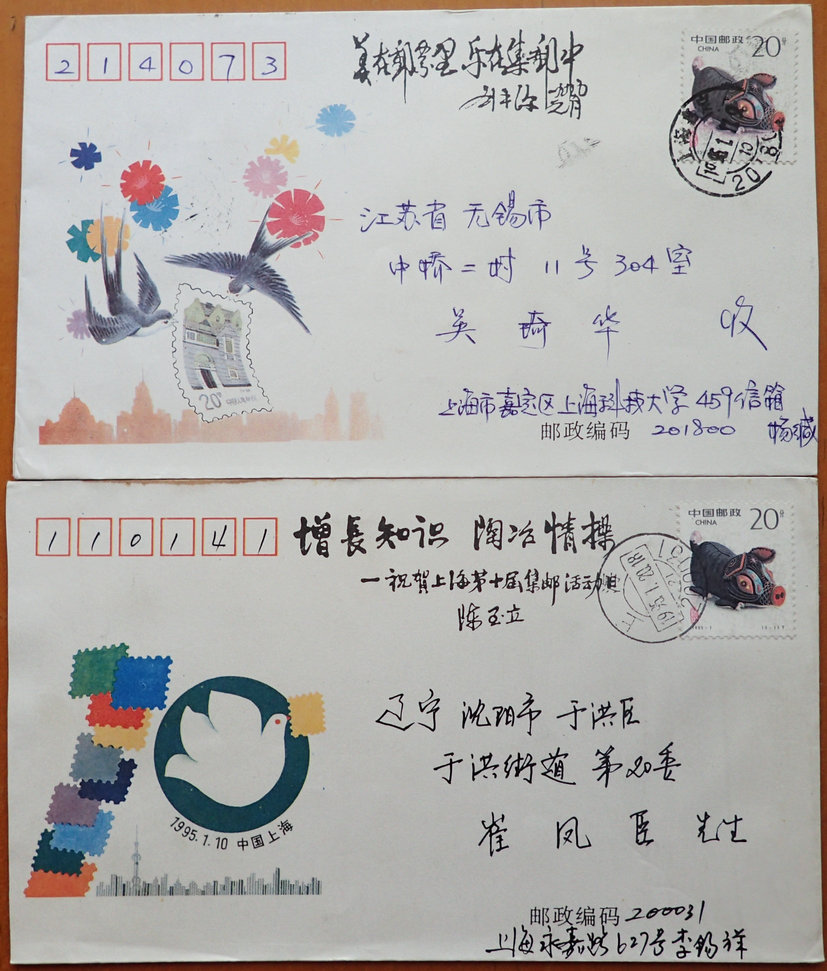 214073
美在邮票里 乐在集邮中
中国邮政
CHINA
20分
江苏省 无锡市
中桥二村 11号 304室
吴琦华 收
20分
上海市嘉定区上海科技大学459信箱
邮政编码 201800 杨
110141
增長知识 陶冶情操
一祝賀上海第十届集邮活动日
陈玉立
中国邮政
CHINA
20分
1995-1
辽宁 沈阳市 于洪区
于洪街道 第20委
崔凤臣 先生
1995.1.10 中国上海
邮政编码 200031
上海永嘉路627号李锡祥